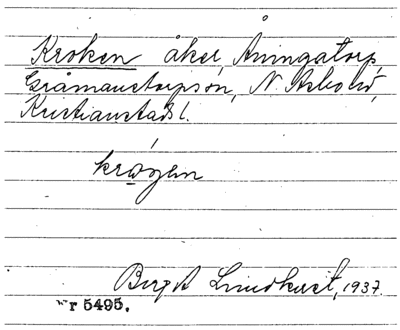 Å
Kroken åker, Åningatorp,
Gråmanstorps sn, N. Åsbo hd,
Kristianstads l.
krógen
Birgit Lindkvist, 1937.
nr 5495.